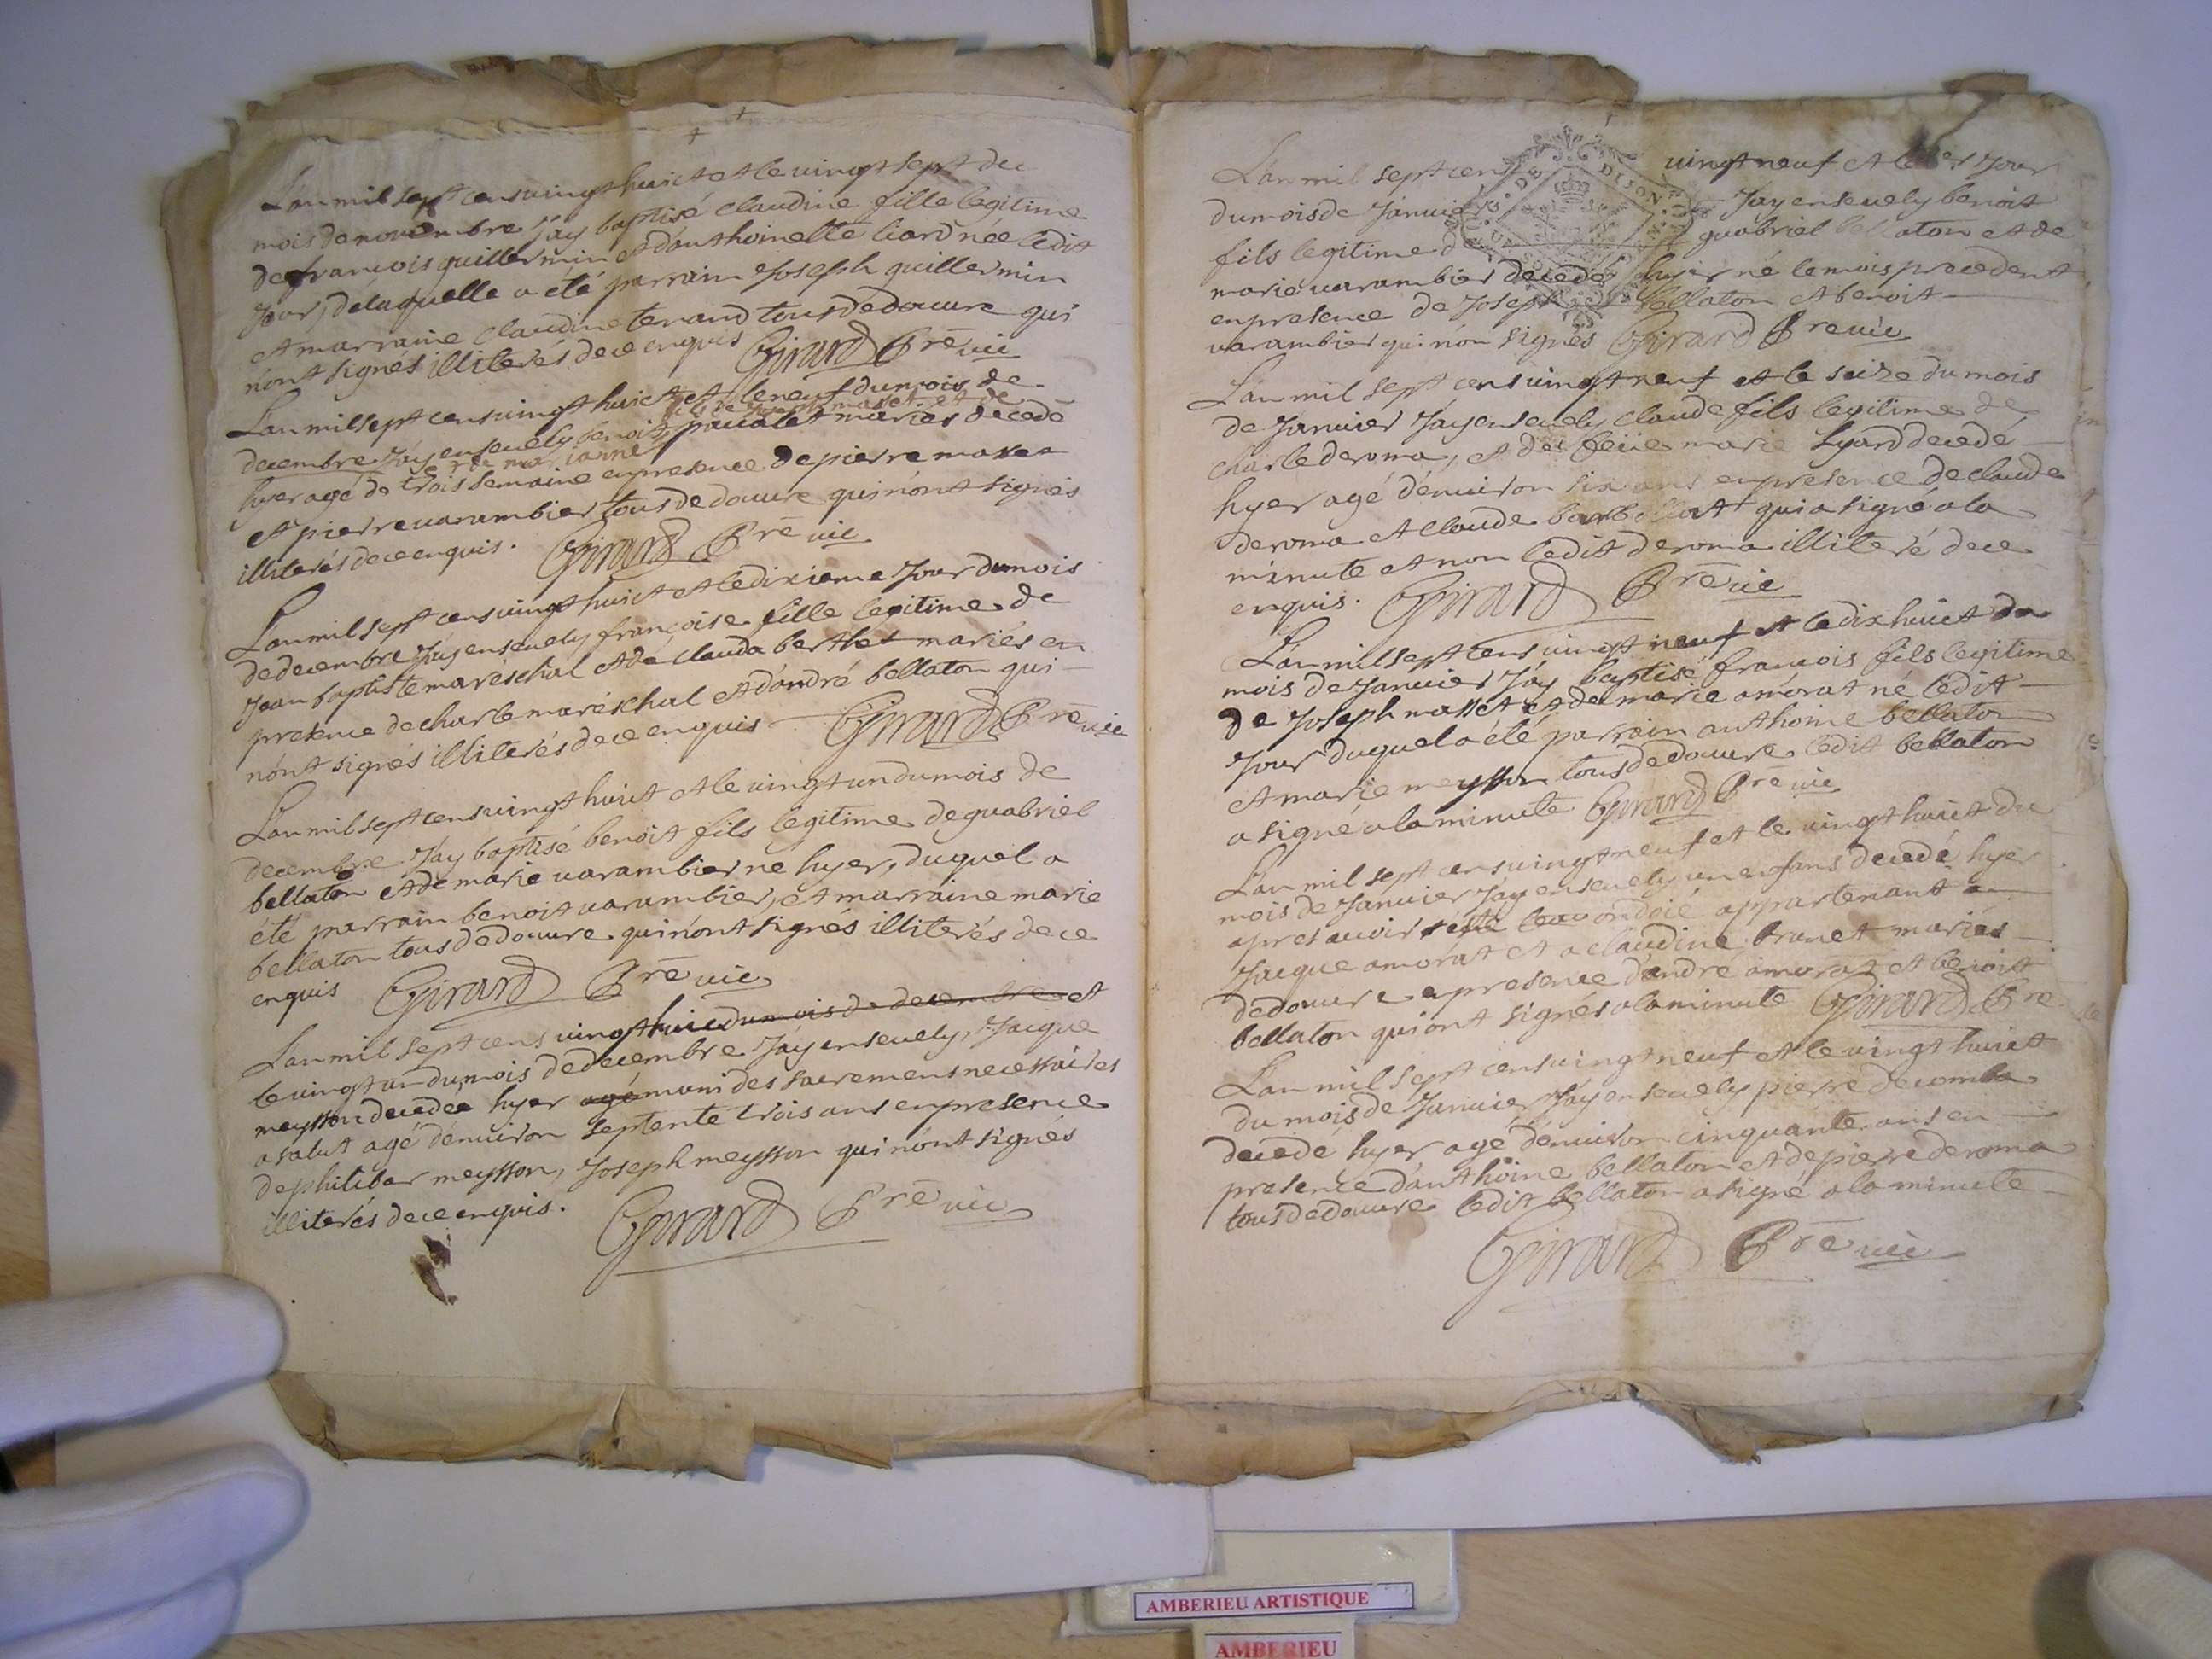 L'an mil sept cens vingt huict et le vingt sept du
mois de novembre j'ay baptisé claudine fille legitime
de françois guillermin et d'anthoinette liard née ledit
jour, de laquelle a été parrain joseph guillermin
et marraine claudine tenand tous de douvre qui
n'ont signés illiterés de ce enquis Girard Prē vic
L'an mil sept cens vingt huict et le neuf du mois de
fils de joseph masset et de
decembre j'ay ensevely benoit pavalet mariés decedé
marianne
hyer agé de trois semaine en presence de pierre masset
et pierre varambier tous de douvre qui n'ont signés
illiterés de ce enquis. Girard Prē vic
L'an mil sept cens vingt huict et le dixieme jour du mois
de decembre j'ay ensevely françoise fille legitime de
jean baptiste maréschal et de clauda berthet mariés en
presence de charle maréschal et d'andré bellaton qui
n'ont signés illiterés de ce enquis Girard Prē vic
L'an mil sept cens vingt huict et le vingt un du mois de
decembre j'ay baptisé benoit fils legitime de guabriel
bellaton et de marie varambier né hyer, duquel a
été parrain benoit varambier, et marraine marie
bellaton tous de douvre qui n'ont signés illiterés de ce
enquis Girard Prē vic
L'an mil sept cens vingt huict du mois de decembre et
le vingt un du mois de decembre j'ay ensevely, jacque
meysson decedée hyer agé muni des sacremens necessaires
a salut agé d'environ septente trois ans en presence
de philibar meysson, joseph meysson qui n'ont signés
illiterés de ce enquis. Girard Prē vic
L'an mil sept cens vingt neuf et le jour
du mois de janvier j'ay ensevely benoit
fils legitime de guabriel bellaton et de
marie varambier decedé hyer né le mois precedent
en presence de joseph bellaton et benoit
varambier qui n'on signés Girard Prē vic
L'an mil sept cens vingt neuf et le seize du mois
de janvier j'ay ensevely claude fils legitime de
charle deroma, et de feüe marie lyard decedé
hyer agé d'environ six ans en presence de claude
deroma et claude qui a signé a la
minute et non ledit deroma illiteré de ce
enquis. Girard Prē vic
L'an mil sept cens vingt neuf et le dix huict du
mois de janvier j'ay baptisé francois fils legitime
de joseph masset et de marie amorat né ledit
jour duquel a été parrain anthoine bellaton
et marie meysson tous de douvre ledit bellaton
a signé a la minute Girard Prē vic
L'an mil sept cens vingt neuf et le vingt huict du
mois de janvier j'ay ensevely un enfans decedé hyer
apres avoir ondoié appartenant a
jacque amorat et a claudine brunet mariés
de douvre en presence d'andré amorat et benoit
bellaton qui ont signés a la minute Girard Prē
L'an mil sept cens vingt neuf et le vingt huict
du mois de janvier j'ay ensevely pierre decomba
decedé hyer agé d'environ cinquante ans en
presence d'anthoine bellaton et de pierre deroma
tous de douvre ledit bellaton a signé a la minute
Girard Prē vic
AMBERIEU ARTISTIQUE
AMBERIEU